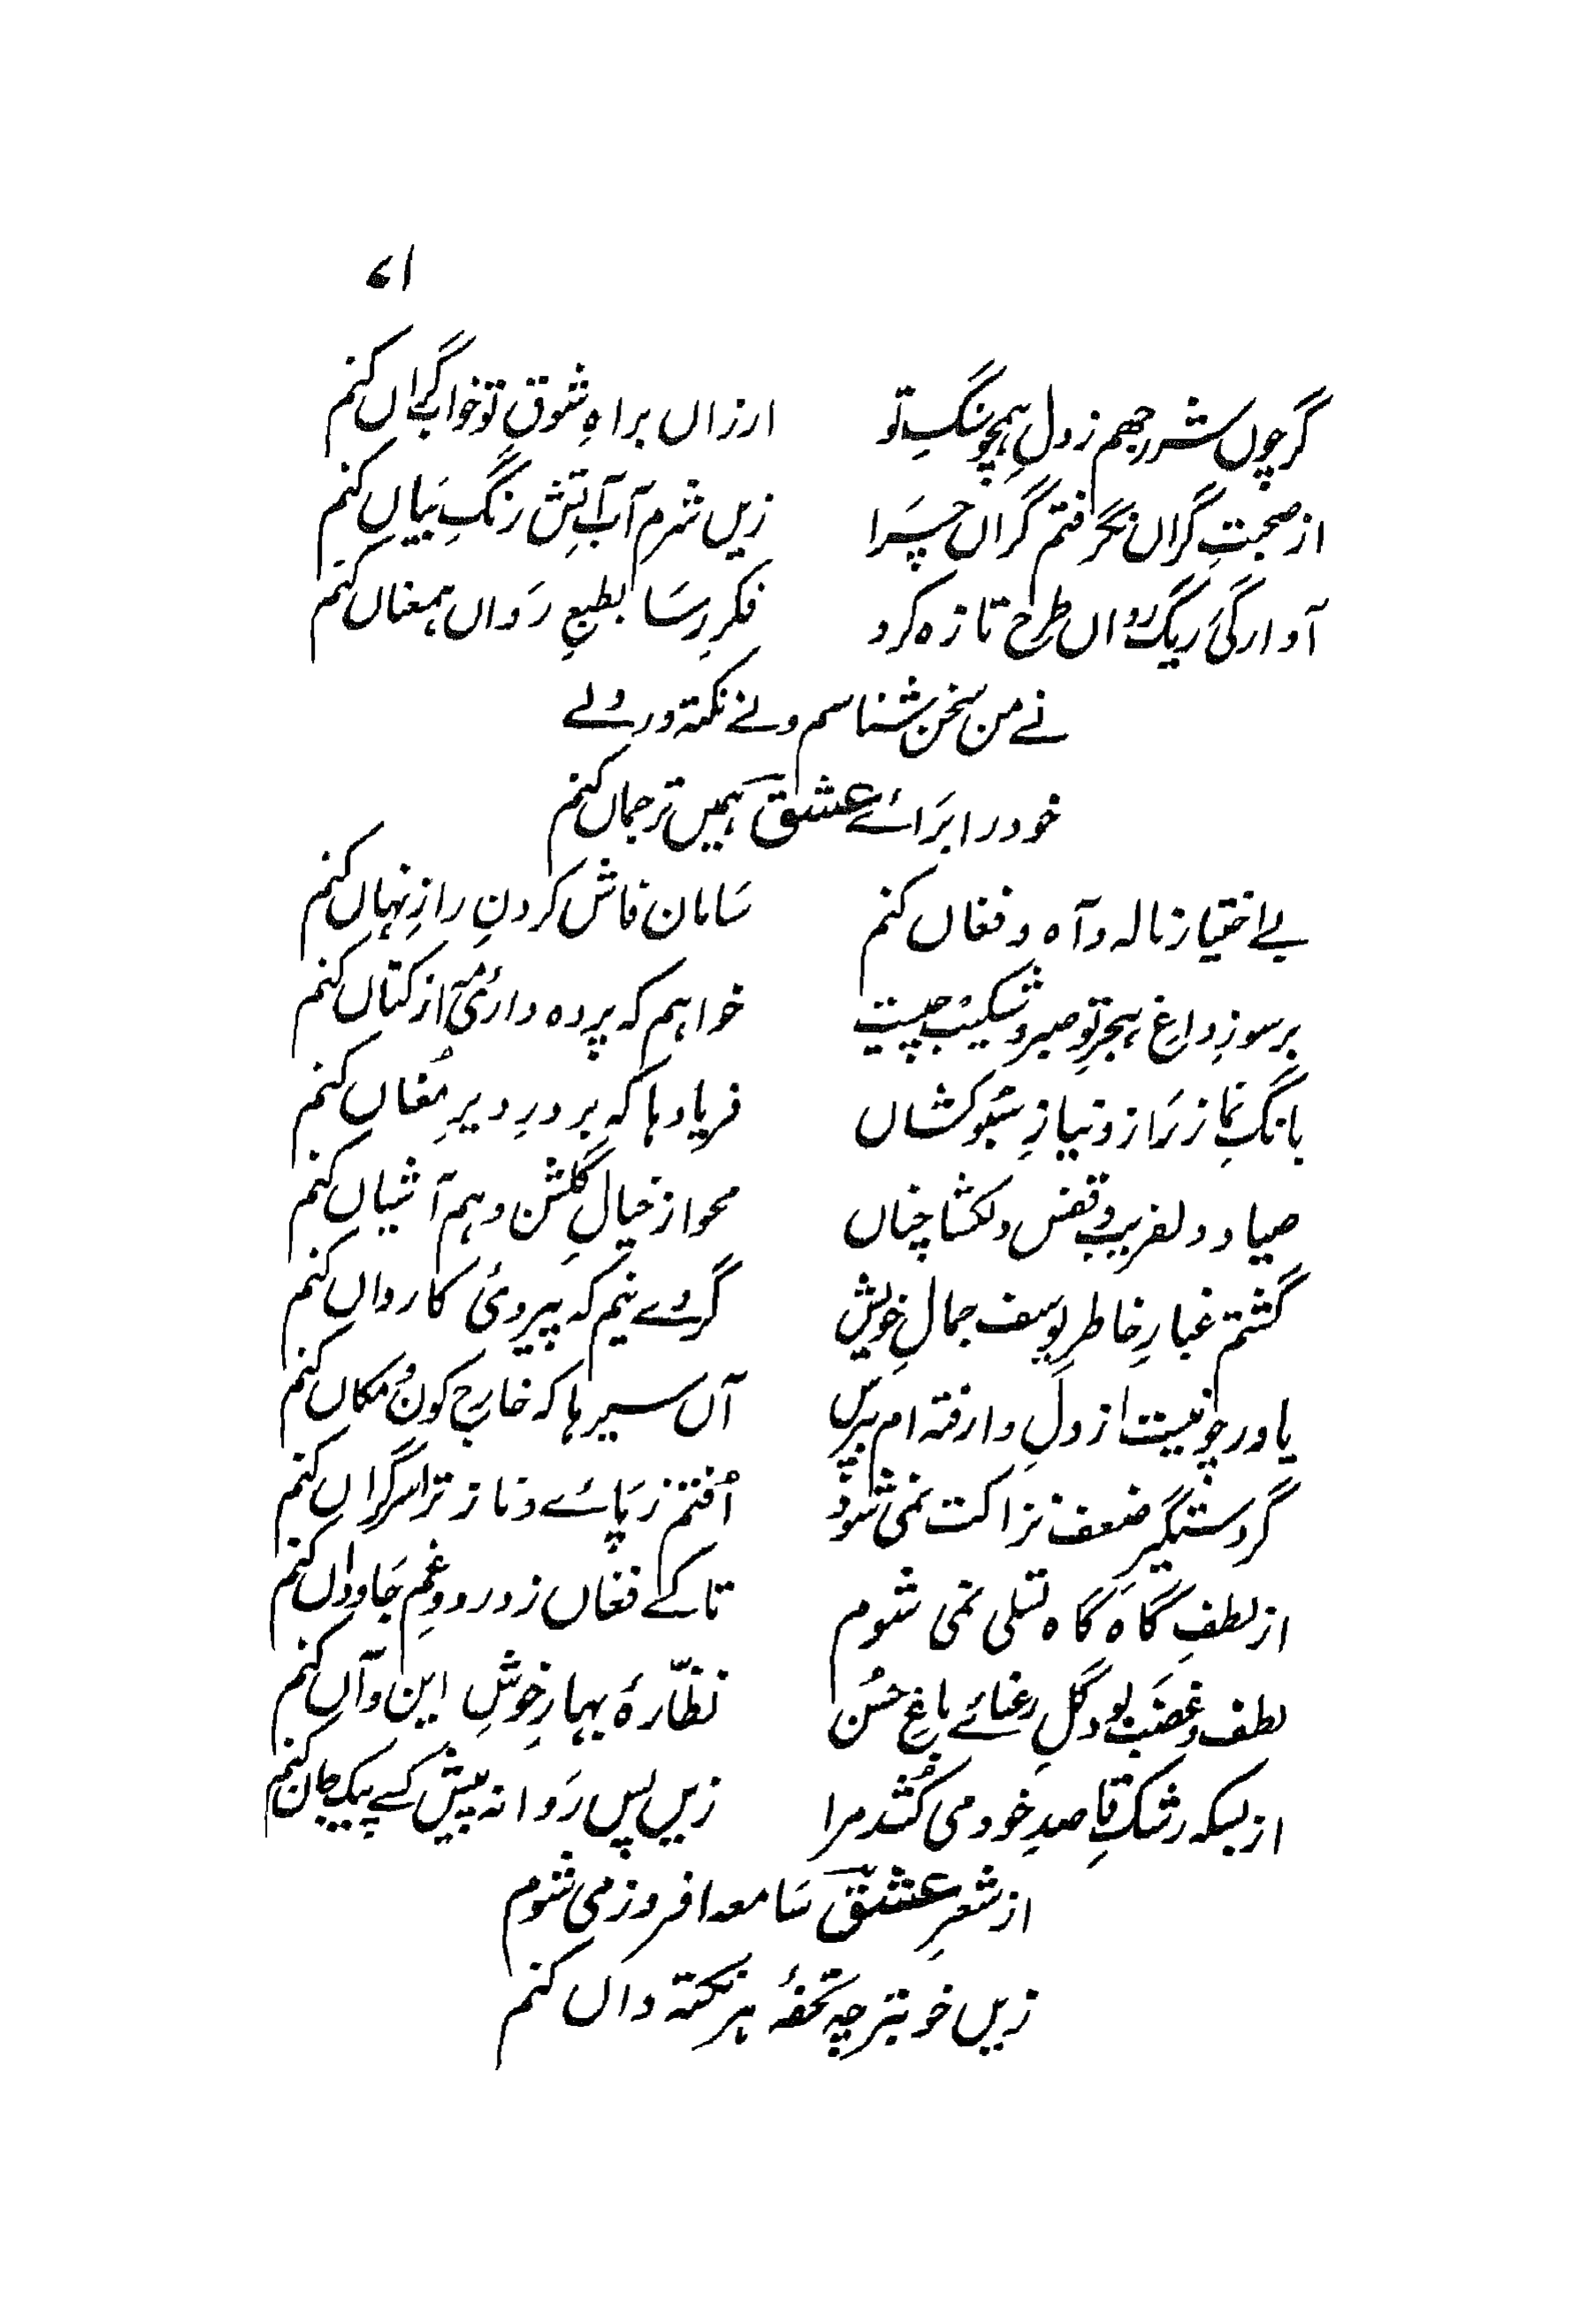 ۷۱
گر چوں شرر جهم ز دلِ ہمچو سنگِ تو ارزاں براہِ شوقِ تو خوابِ گراں کنم
از صحبتِ گراں نگرفتم گراں چَرا زیں شرم آبِ آتشِ رنگِ بَیاں کنم
آوارگیٔ ریگِ رواں طرح تازہ کرد فکرِ رسَا بطبعِ رَواں ہمعناں کنم
نے من سخن شناسم و نے نکتہ ور دلے
خود را برَائے عشقؔ ہمیں ترجماں کنم
بے اختیار نالہ و آہ و فغاں کنم سَامان فاش کردنِ رازِ نہاں کنم
بر سوزِ داغِ ہجرِ تو صبر و شکیب چیست خواہم کہ پردہ داریٔ مہ از کتاں کنم
بانگِ نماز رَاز و نیازِ سَبُو کشاں فریادہا کہ بر درِ دیرِ مُغاں کنم
صیاد دلفریب و قفس دلکشا چناں محو از خیالِ گلشن و ہم آشیاں کنم
گشتم غبارِ خاطرِ یوسف جمالِ خویش گردے نیم کہ پیرویٔ کارواں کنم
یاور چو نیست از دلِ وارفتہ ام بپرس آں سیرہا کہ خارجِ کون و مکاں کنم
گر دستگیرِ ضعف نزاکت نمی شود اُفتم ز پَائے و ناز ترا سرگراں کنم
از لطفِ گاہ گاہ تسلی نمی شوم تا کے فغاں ز درد و غمِ جَاوداں کنم
لطف و غضَب بود گلِ رعنائے باغِ حسُن نظّارۂ بہارِ خوشِ این و آں کنم
از بسکہ رشکِ قاصدِ خود می کُشد مرا زیں پس رَوانہ پیش کسے پیک جان کنم
از شعرِ عشقؔ سَامعہ افروز می شوم
زیں خوبتر چہ تحفۂ ہر نکتہ داں کنم